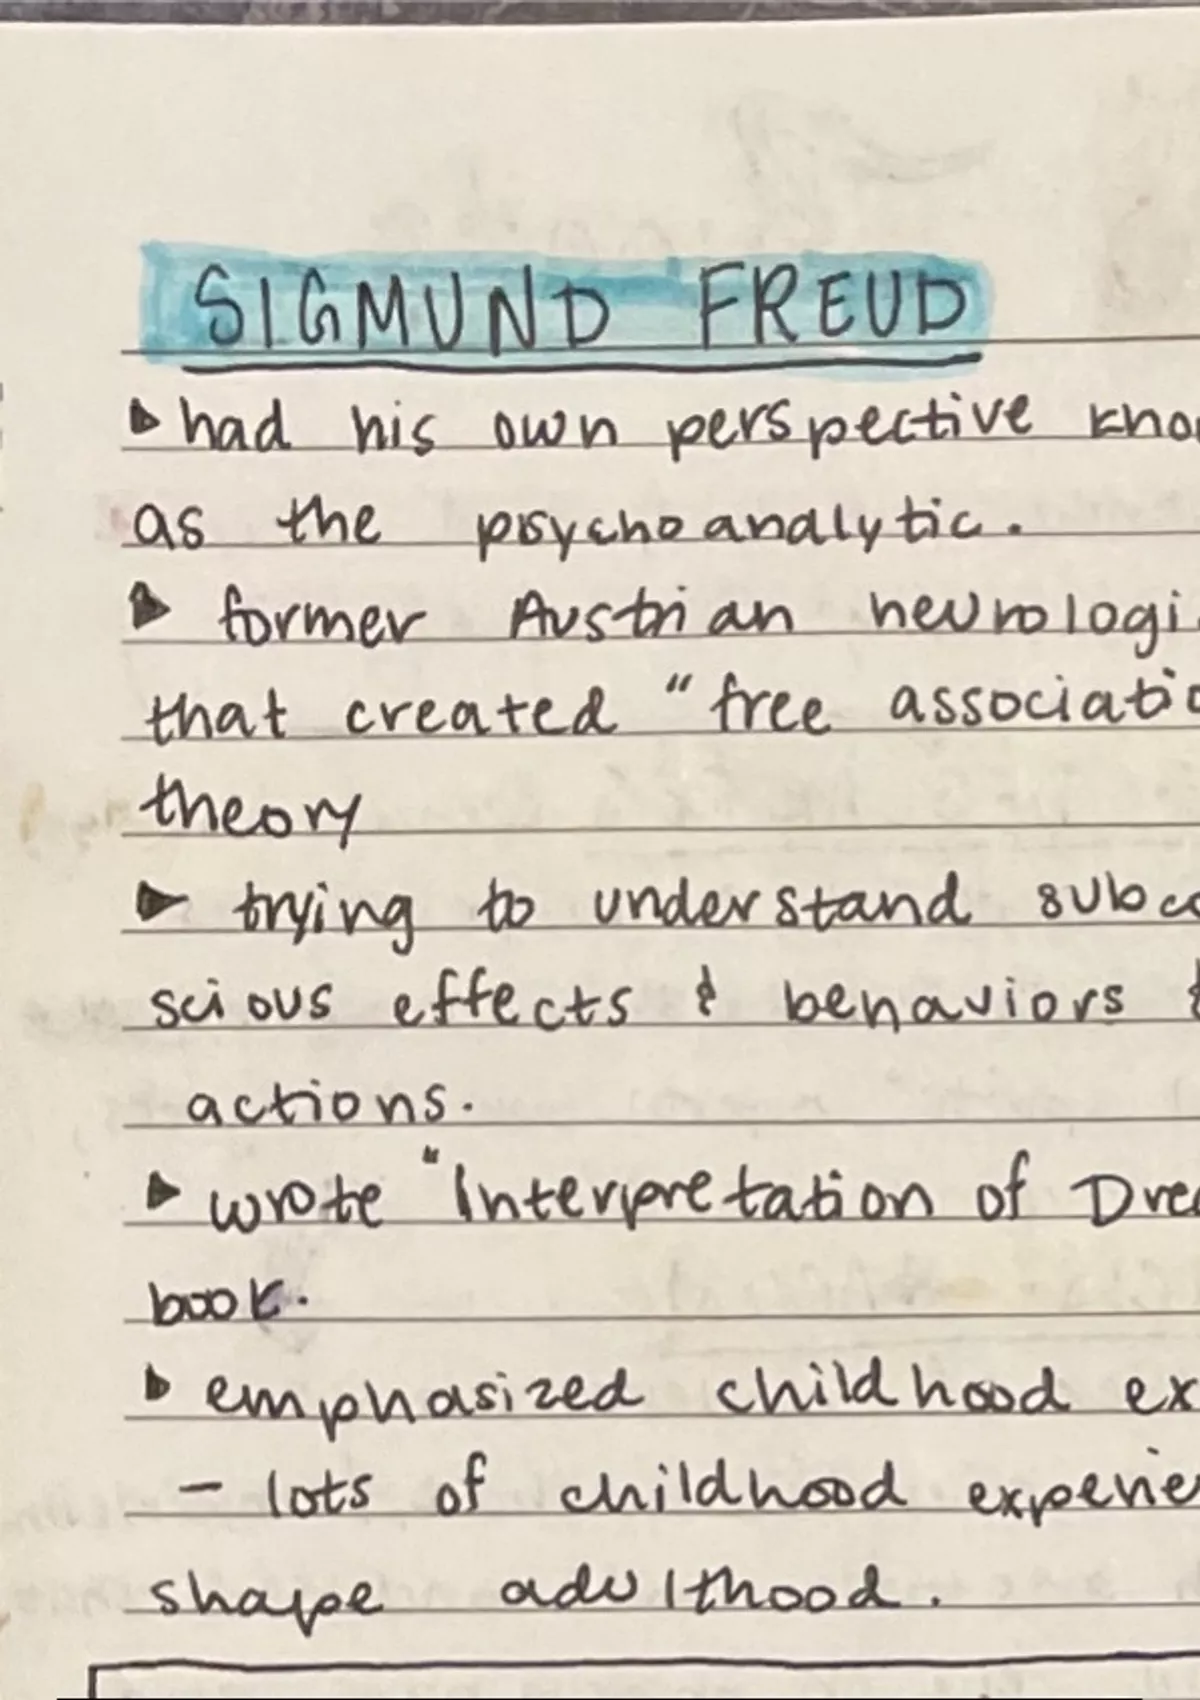 SIGMUND FREUD
▸ had his own perspective
as the psychoanalytic.
▸ former Austrian
that created "free
theory
▸ trying to understand
scious effects & behaviors
actions.
▸ wrote "Interpretation of
book.
▸ emphasized childhood
- lots of childhood
shape adulthood.